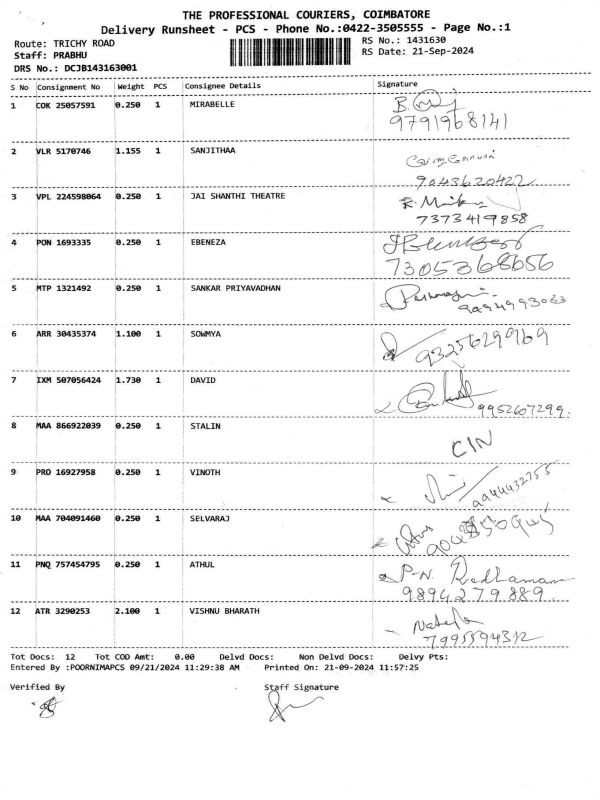 THE PROFESSIONAL COURIERS, COIMBATORE
Delivery Runsheet - PCS - Phone No.:0422-3505555 - Page No.:1
Route: TRICHY ROAD RS No.: 1431630
Staff: PRABHU RS Date: 21-Sep-2024
DRS No.: DCJB143163001
S No Consignment No Weight PCS Consignee Details Signature
1 COK 25057591 0.250 1 MIRABELLE
9791968141
2 VLR 5170746 1.155 1 SANJITHAA
9043620422
3 VPL 224598064 0.250 1 JAI SHANTHI THEATRE
7373419858
4 PON 1693335 0.250 1 EBENEZA
7305368656
5 MTP 1321492 0.250 1 SANKAR PRIYAVADHAN
9994993063
6 ARR 30435374 1.100 1 SOWMYA
9325629969
7 IXM 507056424 1.730 1 DAVID
9952607299.
8 MAA 866922039 0.250 1 STALIN
CIN
9 PRO 16927958 0.250 1 VINOTH
10 MAA 704091460 0.250 1 SELVARAJ
11 PNQ 757454795 0.250 1 ATHUL
P-N.
9894279889.
12 ATR 3290253 2.100 1 VISHNU BHARATH
7995594312
Tot Docs: 12 Tot COD Amt: 0.00 Delvd Docs: Non Delvd Docs: Delvy Pts:
Entered By :POORNIMAPCS 09/21/2024 11:29:38 AM Printed On: 21-09-2024 11:57:25
Verified By Staff Signature